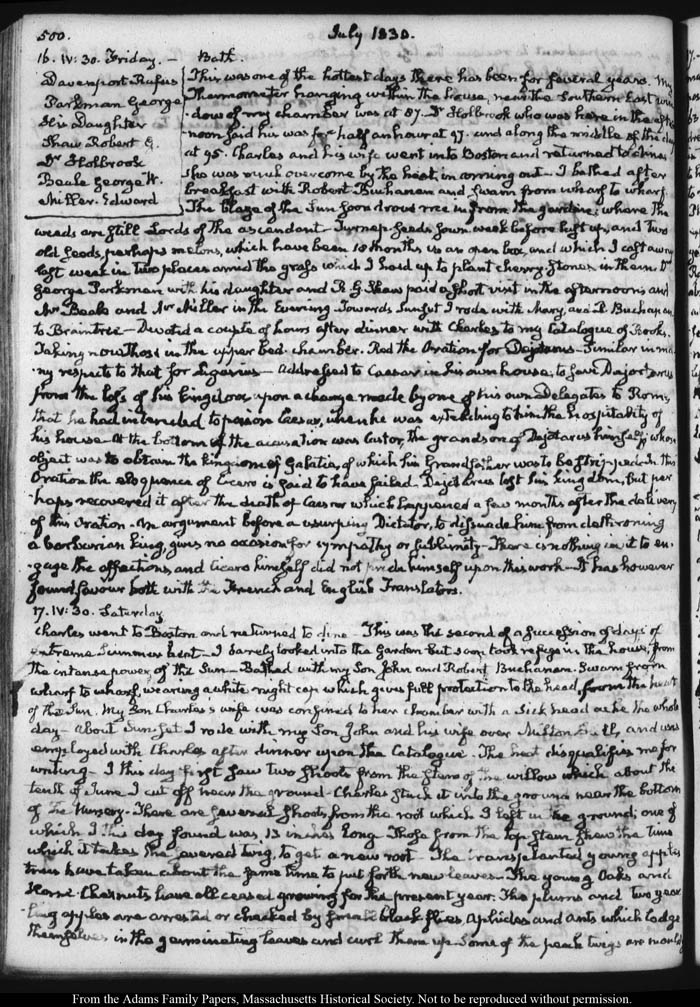 500.
July 1830.
16. IV:30. Friday. — Bath.
Davenport Rufus
Parkman George
His Daughter
Shaw Robert G.
Dr Holbrook
Beale George W.
Miller. Edward
This was one of the hottest days there has been for several years. My
Thermometer hanging within the house, near the Southern East win-
dow of my chamber was at 87. Dr Holbrook who was here in the after
noon said his was for half an hour at 97. and along the middle of the day
at 95. Charles and his wife went into Boston and returned to dine
She was much overcome by the heat, in coming out. I bathed after
breakfast with Robert Buchanan and swam from wharf to wharf.
The blaze of the Sun soon drove me in from the garden; where the
weeds are still Lords of the ascendant. Turnep seeds sown week before last up, and two
old seeds, perhaps melons, which have been 10 months in an open box, and which I cast away
last week in two places amid the grass which I hoed up to plant cherry stones in them. Dr
George Parkman with his daughter and R. G. Shaw paid a short visit in the afternoon; and
Mr Beale and Mr Miller in the Evening. Towards Sunset I rode with Mary, and R. Buchanan
to Braintree — Devoted a couple of hours after dinner with Charles to my Catalogue of Books.
Taking now those in the upper bed-chamber. Read the Oration for Dejotarus — Similar in ma-
ny respects to that for Ligarius — Addressed to Caesar in his own house, to save Dejotarus
from the loss of his kingdom, upon a charge made by one of his own Delegates to Rome,
that he had intended to poison Caesar, when he was extending to him the hospitality of
his house — At the bottom of the accusation was Castor, the grandson of Dejotarus himself, whose
object was to obtain the kingdom of Galatia, of which his Grandfather was to be stripped. In this
Oration the eloquence of Cicero is said to have failed. Dejotarus lost his kingdom, but per
haps recovered it after the death of Caesar which happened a few months after the delivery
of this Oration. An argument before a usurping Dictator, to dissuade him from dethroning
a barbarian king, gives no occasion for sympathy or sublimity — There is nothing in it to en-
gage the affections, and Cicero himself did not pride himself upon this work — It has however
found favour both with the French and English Translators.
17. IV:30. Saturday.
Charles went to Boston and returned to dine — This was the second of a succession of days of
extreme Summer heat — I barely looked into the Garden but soon took refuge in the house, from
the intense power of the Sun — Bathed with my Son John and Robert Buchanan. Swam from
wharf to wharf, wearing a white night cap which gives full protection to the head, from the heat
of the Sun. My Son Charles's wife was confined to her chamber with a sick head ache the whole
day — About Sunset I rode with my Son John and his wife over Milton hills, and was
employed with Charles after dinner upon the Catalogue. The heat disqualifies me for
writing — I this day first saw two shoots from the stem of the willow which about the
tenth of June I cut off near the ground — Charles stuck it into the ground near the bottom
of the Nursery — There are several shoots from the root which I left in the ground; one of
which I this day found was 13 inches long. Those from the top stem shew the time
which it takes the severed twig, to get a new root — The transplanted young apple
trees have taken about the same time to put forth new leaves — The young Oaks and
Horse-Chesnuts have all ceased growing for the present year. The plums and two year
ling apples are arrested or checked by small black flies Aphides and ants which lodge
themselves in the germinating leaves and curl them up. Some of the peach twigs are
From the Adams Family Papers, Massachusetts Historical Society. Not to be reproduced without permission.